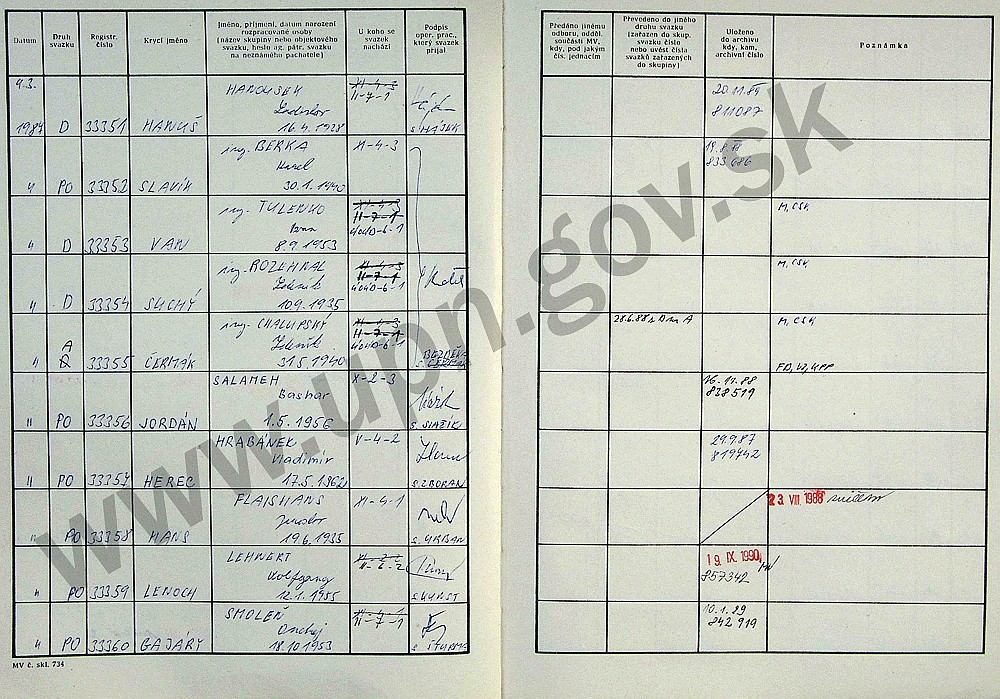 Datum
Druh svazku
Registr. číslo
Krycí jméno
Jméno, příjmení, datum narození
rozpracované osoby
(název skupiny nebo objektového
svazku, heslo ag. pátr. svazku
na neznámého pachatele)
U koho se
svazek
nachází
Podpis
oper. prac.,
který svazek
přijal
Předáno jinému
odboru, odděl.
součásti MV,
kdy, pod jakým
čís. jednacím
Převedeno do jiného
druhu svazku
(zařazen do skup.
svazku číslo
nebo uvést čísla
svazků zařazených
do skupiny)
Uloženo
do archivu
kdy, kam,
archivní číslo
Poznámka
9.3.
HANOUSEK
XI-4-3
II-7-1
20.11.84
Ladislav
811087
1984 D 33351 HANUŠ
16.4.1928
s. HÁJEK
ing. BERKA
XI-4-3
833 686
Karel
" PO 33352 SLAVÍK
30.1.1940
ing. TULENKO
XI-4-3
II-7-1
4040-6-1
M, CSK
" D 33353 VAN
8.9.1953
ing. ROZEHNAL
XI-4-3
II-7-1
4040-6-1
M, CSK
Zdeněk
" D 33354 SUCHÝ
10.9.1935
ing. CHALUPSKÝ
XI-4-3
II-7-1
4040-6-1
28.6.88 s D na A
M, CSK
Zdeněk
A
" D 33355 ČERMÁK
31.5.1940
SALAMEH
X-2-3
16.11.88
838519
Bashar
" PO 33356 JORDÁN
1.5.1956
HRABÁNEK
V-4-2
29.9.87
819742
Vladimír
" PO 33357 HEREC
17.5.1962
s. ZBORAN
FLAISHANS
XI-4-1
23. VIII. 1988 zničen
Jaroslav
" PO 33358 HANS
19.6.1935
s. URBAN
LEHNERT
II-6-2
19. IX. 1990
857342
Wolfgang
" PO 33359 LENOCH
12.1.1955
SMOLEŇ
II-7-1
10.1.89
842 919
Ondrej
" PO 33360 GAJÁRY
18.10.1953
MV č. skl. 734
www.upn.gov.sk